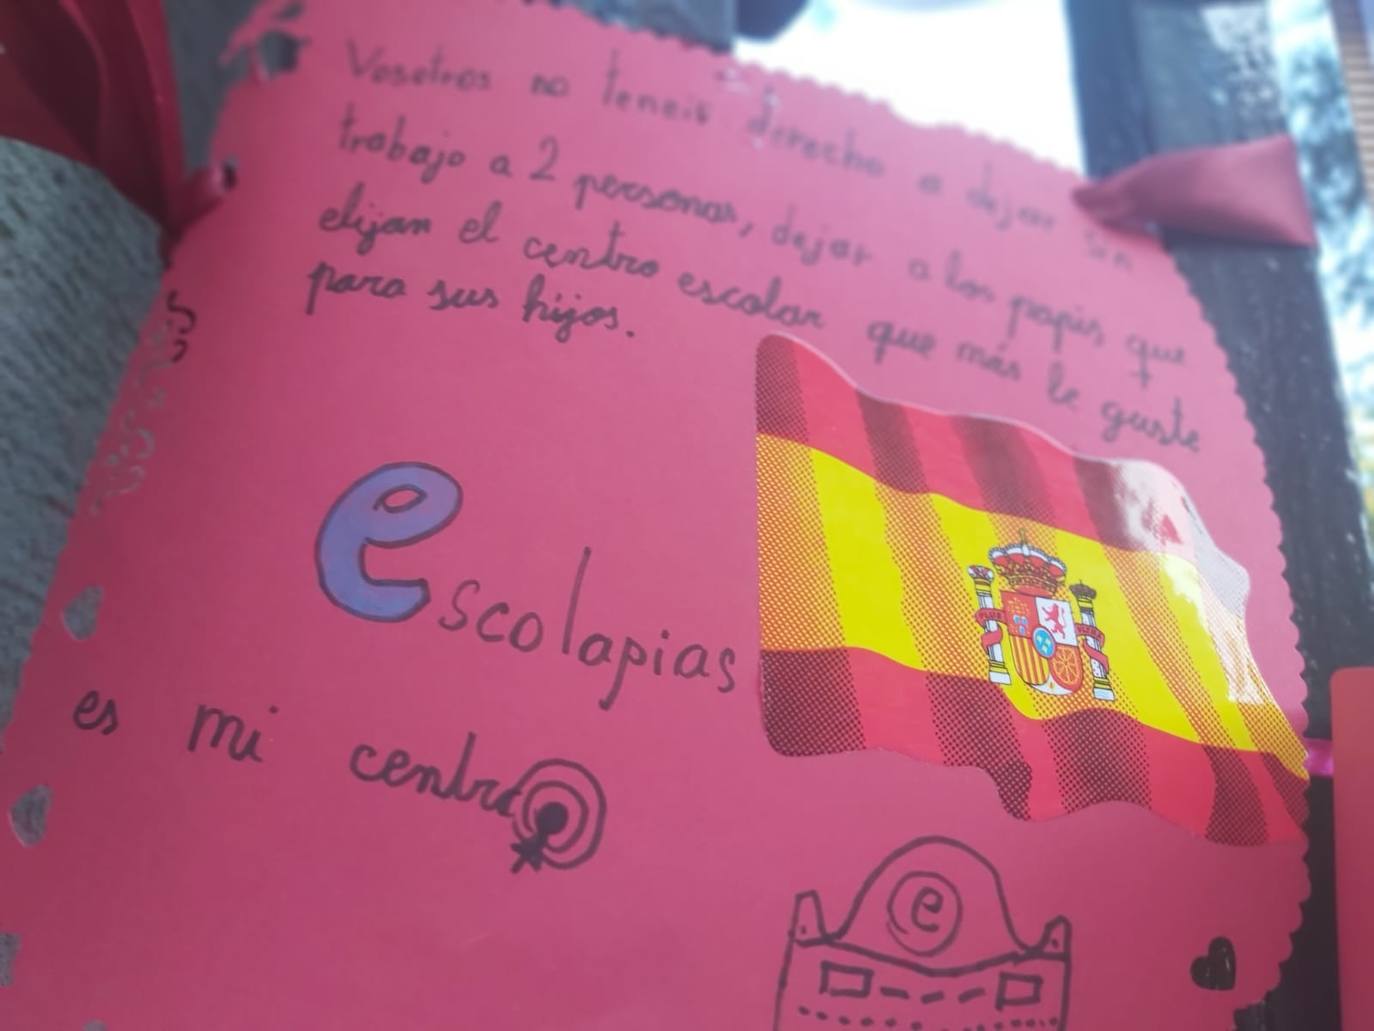 Vosotros no teneis derecho a dejar sin
trabajo a 2 personas, dejar a los papis que
elijan el centro escolar que más le guste
para sus hijos.
escolapias
es mi centro
e